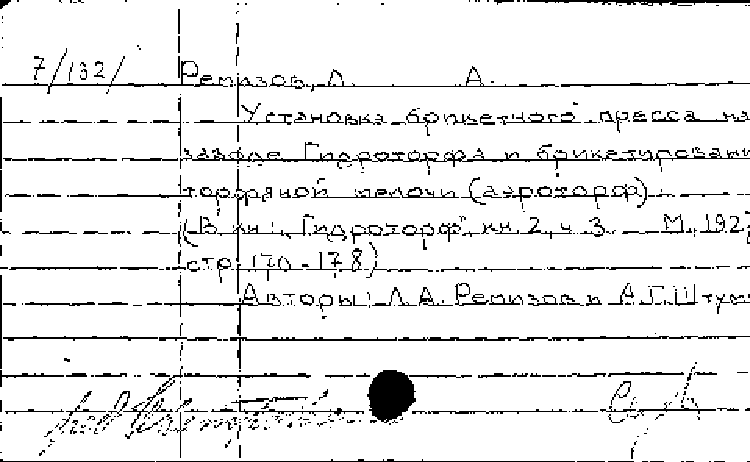 7/132/ Ремизов, Л. А.
Установка брикетного пресса на
заводе Гидроторфа и брикетировани
торфяной мелочи (аэроторф)
(В кн: „Гидроторф", кн. 2, ч. 3 М., 192
стр. 170-178)
Авторы: Л.А. Ремизов и А.Г. Штум